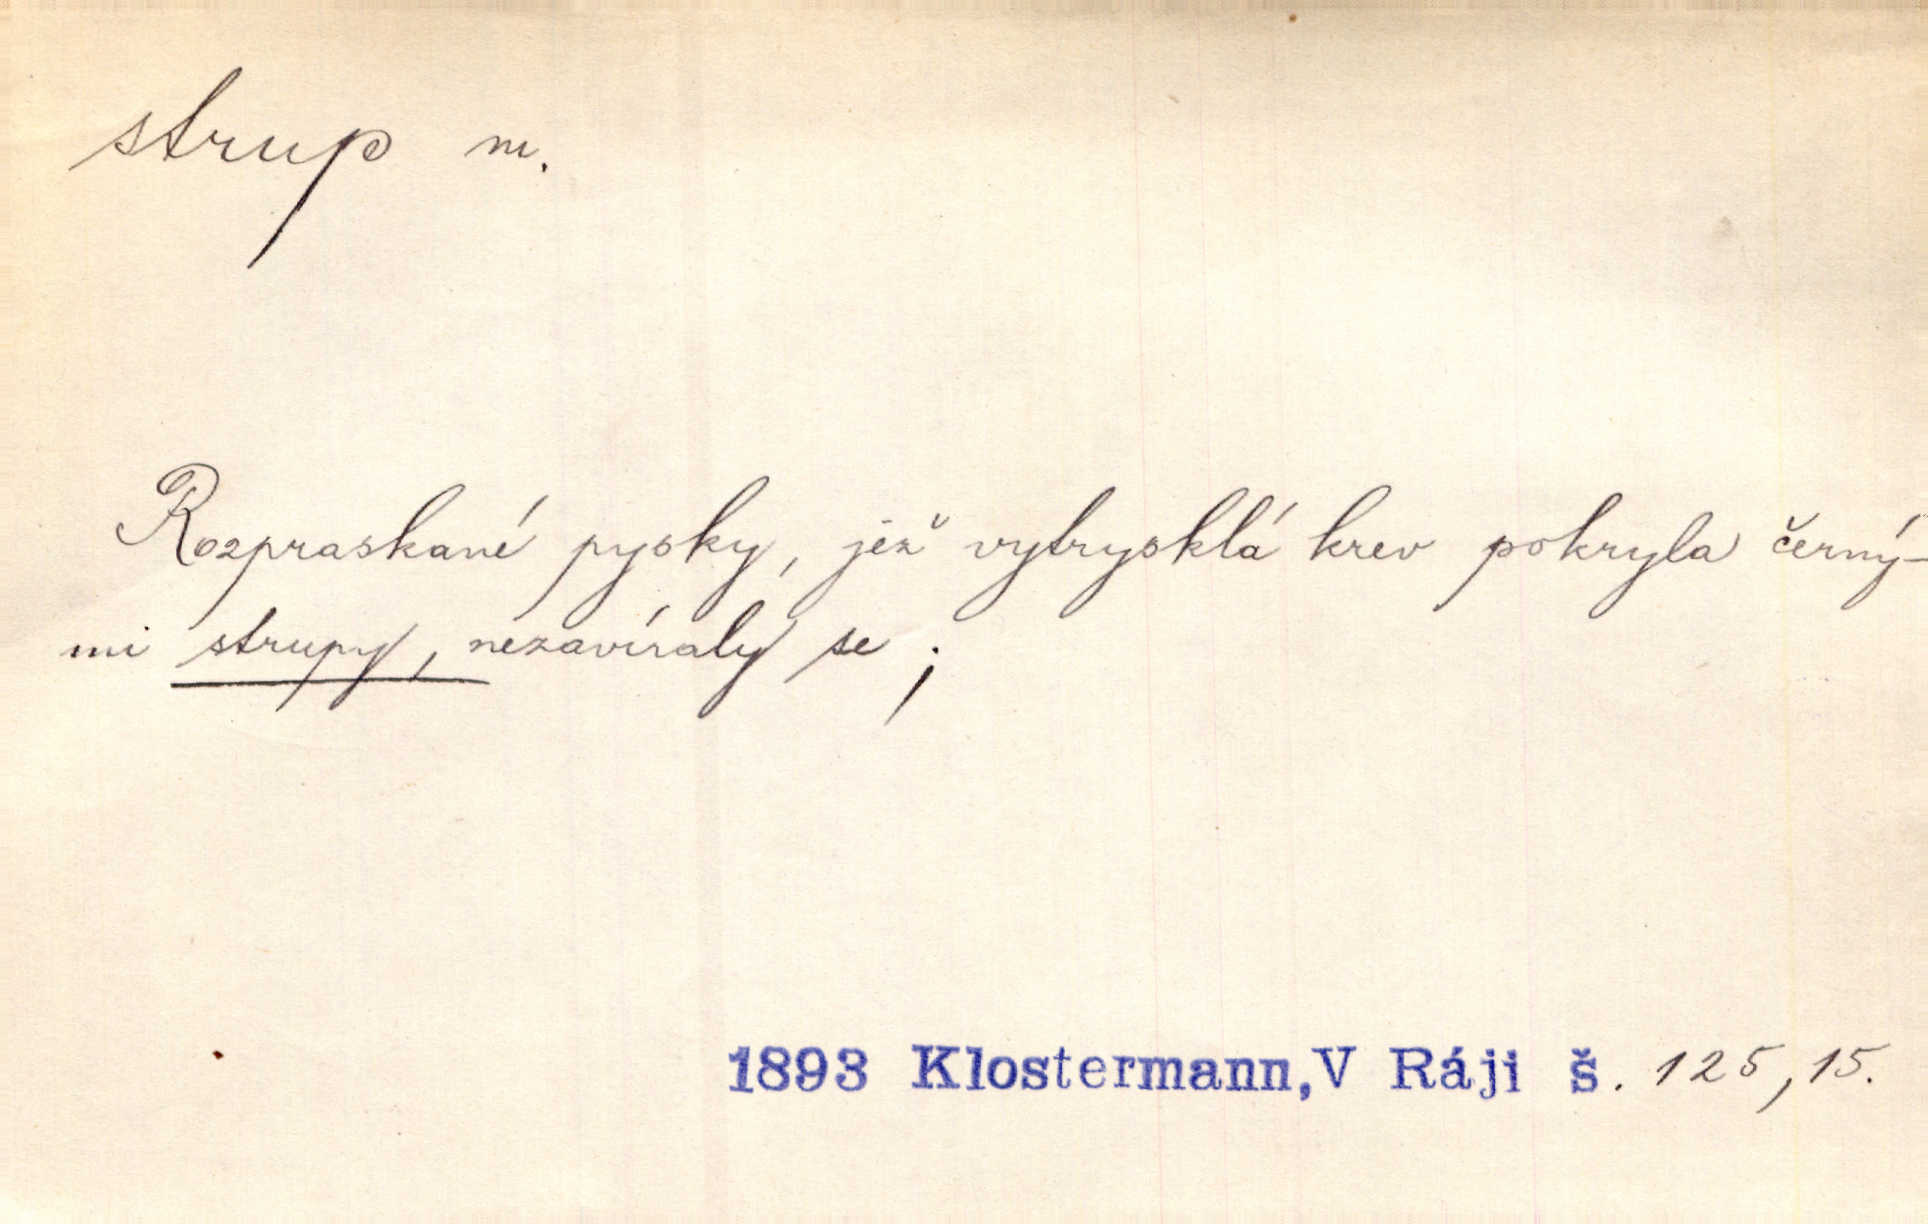 strup m.
Rozpraskané pysky, jež vytrysklá krev pokryla černý-
mi strupy, nezavíraly se;
1893 Klostermann, V Ráji š. 125, 15.